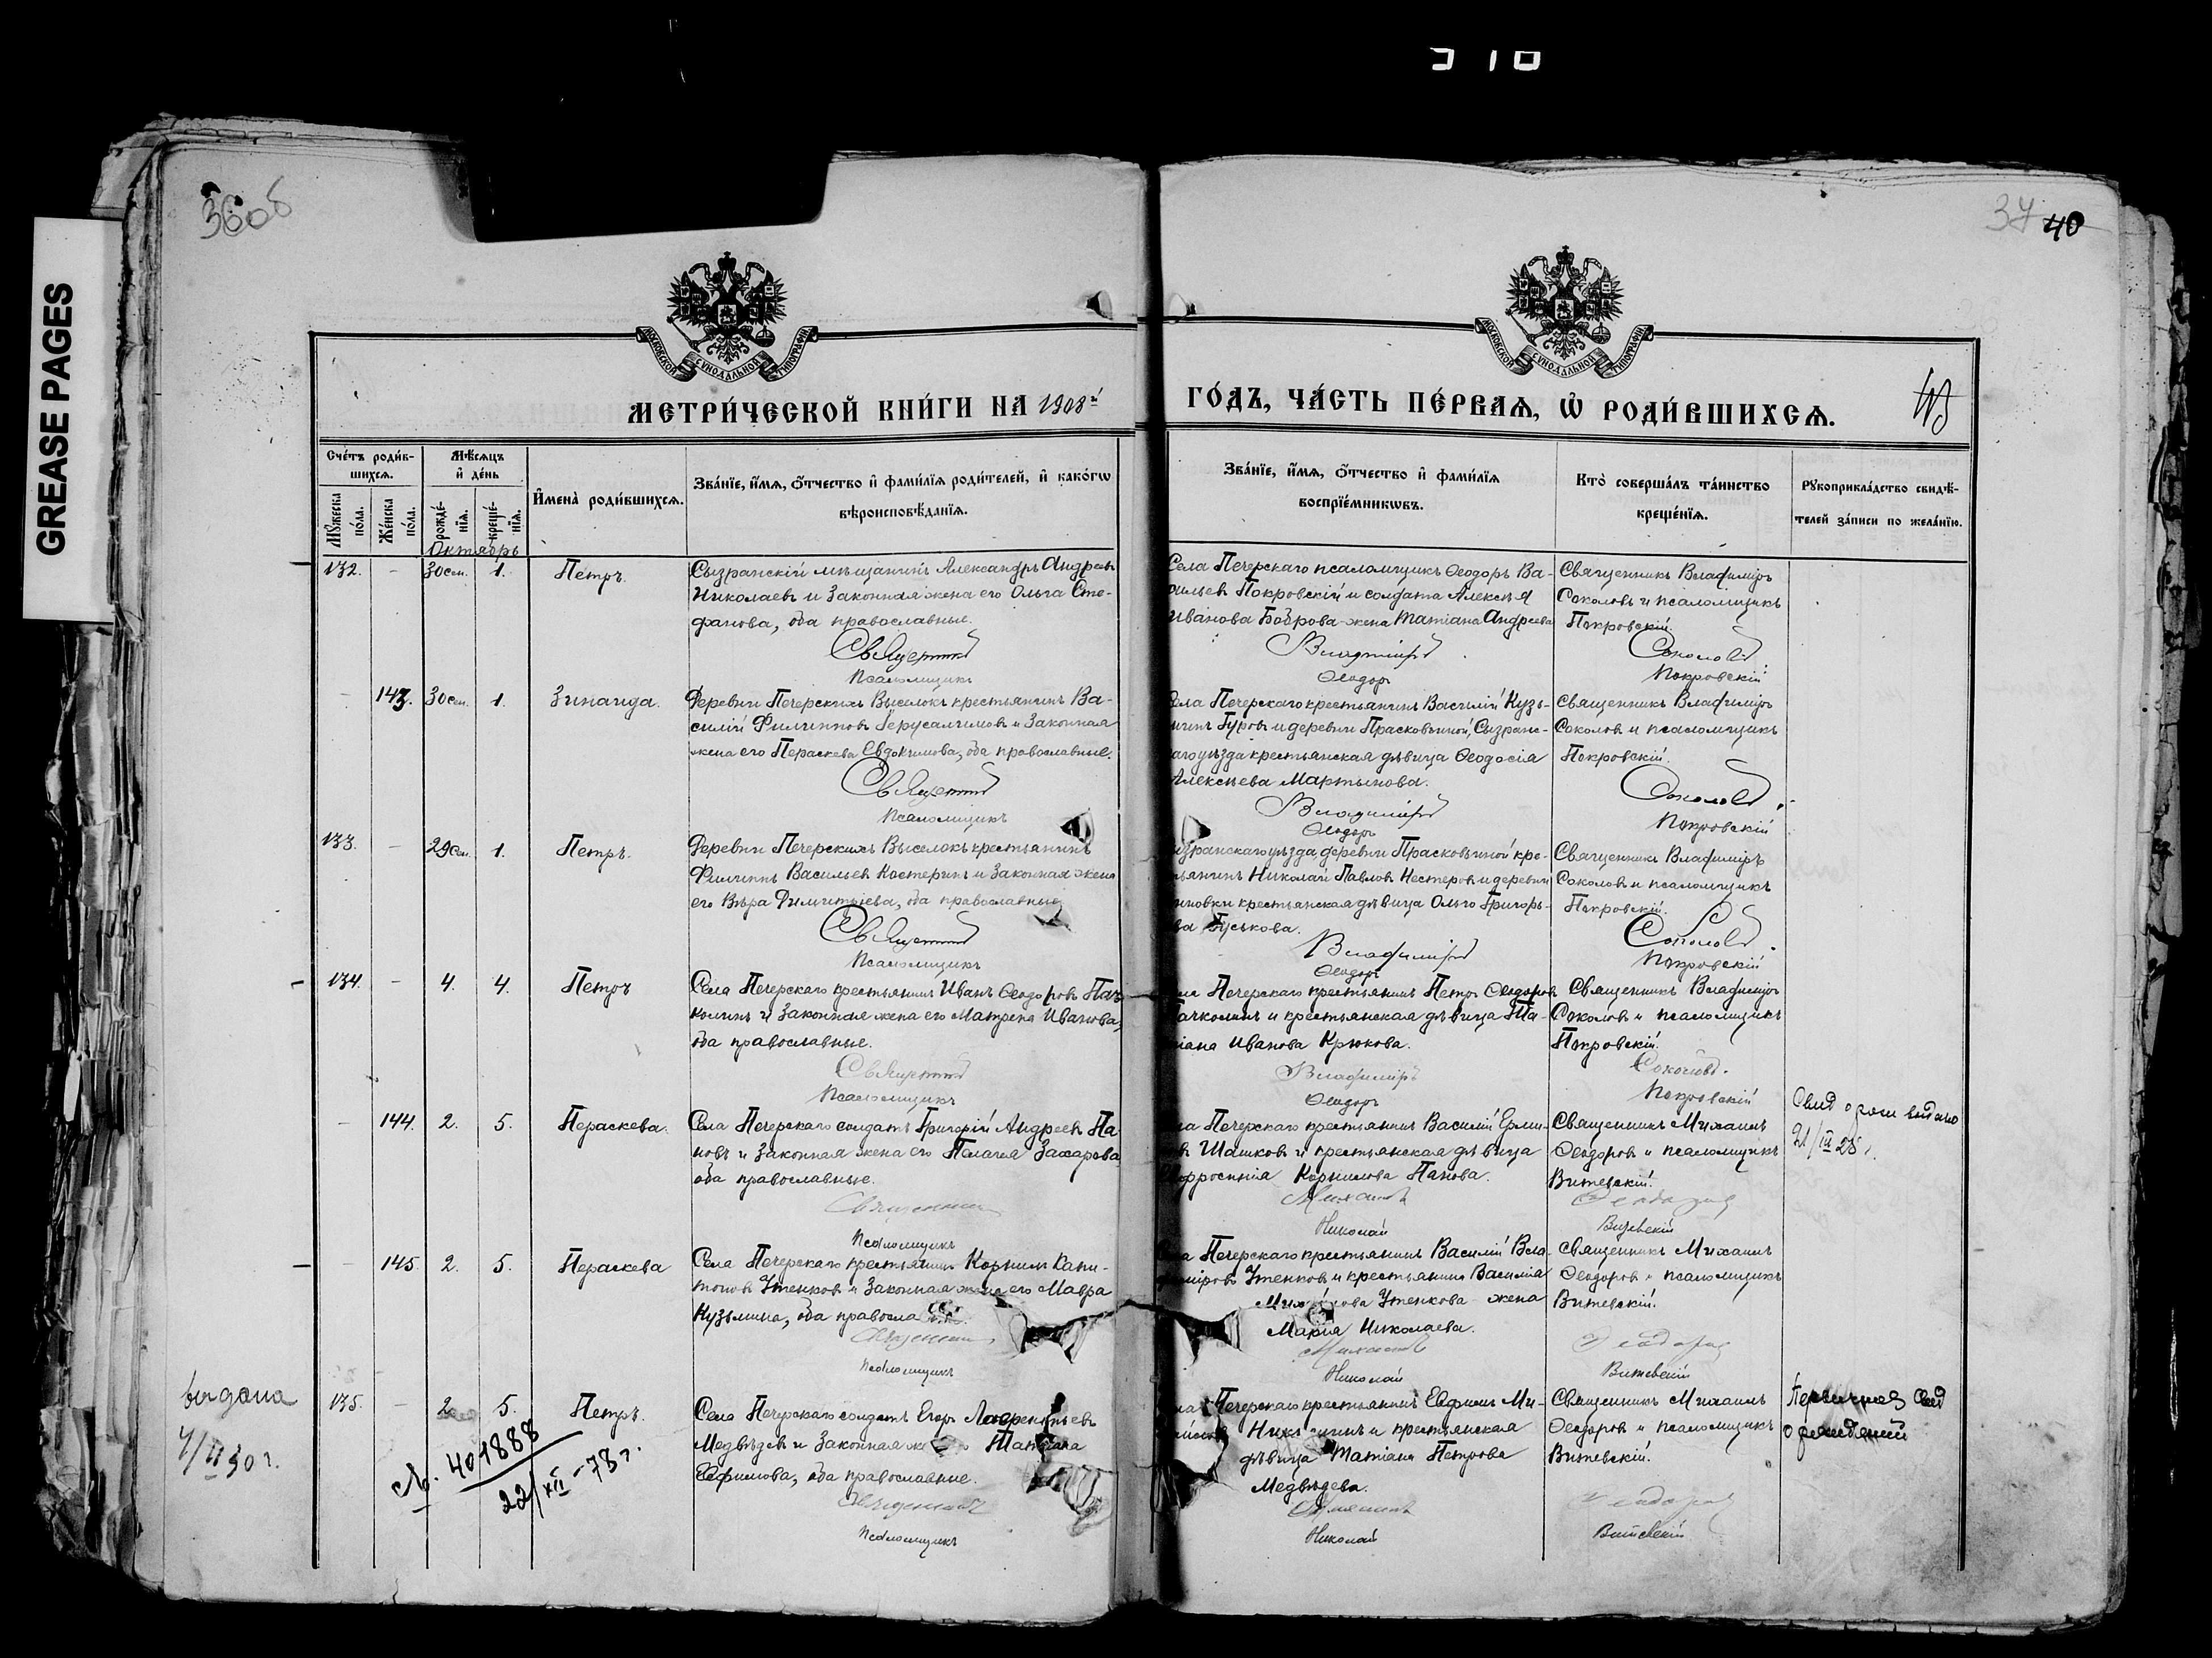 310
GREASE PAGES
36об
37 40
МОСКОВСКОЙ СУНОДАЛЬНОЙ ТИПОГРАФІИ
МОСКОВСКОЙ СУНОДАЛЬНОЙ ТИПОГРАФІИ
МЕТРИ́ЧЕСКОЙ КНИ́ГИ НА 1908й
ГО́ДЪ, ЧА́СТЬ ПЕ́РВАѦ, Ѿ РОДИ́ВШИХСѦ.
Сче́тъ роди́в-
шихсѧ.
Мꙋ́жеска
по́ла.
Же́нска
по́ла.
Мѣ́сѧцъ
и҆ де́нь
рожде́-
нїѧ.
креще́-
нїѧ.
Октябрь
И҆мена̀ роди́вшихсѧ.
Зва́нїе, и҆́мѧ, ѻ҆́тчество и҆ фами́лїѧ роди́телей, и҆ како́гѡ
вѣроисповѣ́данїѧ.
Зва́нїе, и҆́мѧ, ѻ҆́тчество и҆ фами́лїѧ
воспрїе́мникѡвъ.
Кто̀ соверша́лъ та́инство
креще́нїѧ.
Рꙋкоприкла́дство свидѣ́-
телей за́писи по жела́нїю.
132. - 30 сен. 1. Петръ.
Сызранскій мѣщанинъ Александръ Андреевъ
Николаевъ и законная жена его Ольга Сте-
фанова, оба православные.
Священникъ
Псаломщикъ
Села Печерскаго псаломщикъ Ѳеодоръ Ва-
сильевъ Покровскій и солдата Алексѣя
Иванова Боброва жена Татіана Андреева
Владиміръ
Ѳеодоръ
Священникъ Владиміръ
Соколовъ и псаломщикъ
Покровскій.
Соколовъ
Покровскій
- 143. 30 сен. 1. Зинаида.
Деревни Печерскихъ Выселокъ крестьянинъ Ва-
силій Филипповъ Іерусалимовъ и законная
жена его Параскева Евдокимова, оба православные.
Священникъ
Псаломщикъ
Села Печерскаго крестьянинъ Василій Кузь-
минъ Гуровъ и деревни Прасковьиной, Сызранс-
каго уѣзда крестьянская дѣвица Ѳеодосія
Алексѣева Мартынова.
Владиміръ
Ѳеодоръ
Священникъ Владиміръ
Соколовъ и псаломщикъ
Покровскій.
Соколовъ
Покровскій
133. - 29 сен. 1. Петръ.
Деревни Печерскихъ Выселокъ крестьянинъ
Филиппъ Васильевъ Костеринъ и законная жена
его Вѣра Димитріева, оба православные
Священникъ
Псаломщикъ
ызранскаго уѣзда деревни Прасковьиной кре-
тьянинъ Николай Павловъ Нестеровъ и деревни
крестьянская дѣвица Ольга Григорь-
ва Гуськова.
Владиміръ
Ѳеодоръ
Священникъ Владиміръ
Соколовъ и псаломщикъ
Покровскій.
Соколовъ
Покровскій
134. - 4. 4. Петръ
Села Печерскаго крестьянинъ Иванъ Ѳеодоровъ Пач-
колинъ и законная жена его Матрена Иванова,
оба православные.
Священникъ
Псаломщикъ
ла Печерскаго крестьянинъ Петръ Ѳеодоровъ
ачколинъ и крестьянская дѣвица Та-
тіана Иванова Крюкова.
Владиміръ
Ѳеодоръ
Священникъ Владиміръ
Соколовъ и псаломщикъ
Покровскій.
Соколовъ.
Покровскій
- 144. 2. 5. Параскева.
Села Печерскаго солдатъ Григорій Андреевъ Па-
новъ и законная жена его Пелагія Захарова
оба православные.
Священникъ
Псаломщикъ
ла Печерскаго крестьянинъ Василій Ерми-
въ Шашковъ и крестьянская дѣвица
фросинія Корнилова Панова.
Михаилъ
Николай
Священникъ Михаилъ
Ѳеодоровъ и псаломщикъ
Витевскій.
Ѳеодоровъ
Витевскій
Свид о рожд выдано
21/III 28 г.
- 145. 2. 5. Параскева
Села Печерскаго крестьянинъ Корнилъ Капи-
тоновъ Утенковъ и законная жена его Мавра
Кузьмина, оба правосла
Священникъ
Псаломщикъ
ла Печерскаго крестьянинъ Василій Вла-
диміровъ Утенковъ и крестьянина Василія
Михайлова Утенкова жена
Марія Николаева.
Михаилъ
Николай
Священникъ Михаилъ
Ѳеодоровъ и псаломщикъ
Витевскій.
Ѳеодоровъ
Витевскій
выдана
4/II 30 г.
135. - 2. 5. Петръ.
№ 401888
22/XII-78 г.
Села Печерскаго солдатъ Егоръ Лаврентьевъ
Медвѣдевъ и законная же Татіана
Евфимова, оба православные.
Священникъ
Псаломщикъ
ла Печерскаго крестьянинъ Евфимъ Ми-
и крестьянская
дѣвица Татіана Петрова
Медвѣдева.
Михаилъ
Николай
Священникъ Михаилъ
Ѳеодоровъ и псаломщикъ
Витевскій.
Ѳеодоровъ
Витевскій
Первичная Свид
о рождении